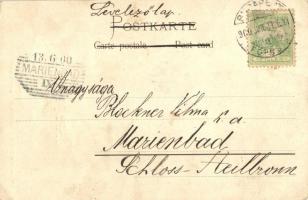 Levelezőlap
POSTKARTE
Carte postale Post card
13.6.00
MARIENBAD
Nagysága
Blockner Vilma k a
Marienbad
Schloss-Heilbronn